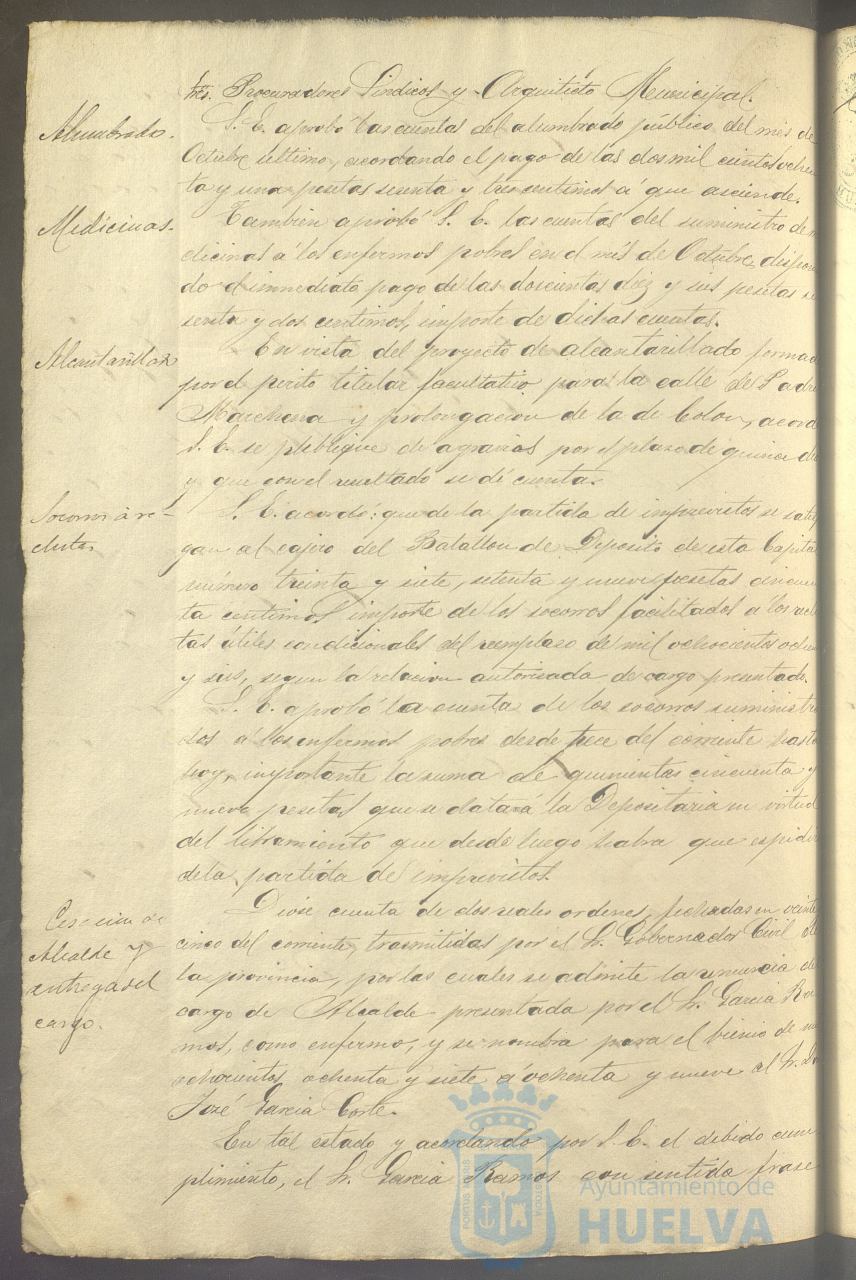 tres. Procuradores Síndicos y Arquitecto Municipal.
Alumbrado.
S. E. aprobó las cuentas del alumbrado público del més de
Octubre último, acordando el pago de las dos mil cientos ochen
ta y una pesetas sesenta y tres centimos á que asciende.
Medicinas.
Tambien aprobó S. E. las cuentas del suministro de m
dicinas á los enfermos pobres en el més de Octubre, disponi
do el inmediato pago de las doscientas diez y seis pesetas se
senta y dos centimos, importe de dichas cuentas.
Alcantarillas
En vista del proyecto de alcantarillado formad
por el perito titular facultativo para la calle de Padre
Marchena y prolongacion de la de Colon, acord
S. E. se publique de agravios por el plazo de quince di
y que con el resultado se dé cuenta.
Socorros à re-
clutas
S. E. acordó: que de la partida de imprevistos se satis
gan al cajero del Batallon de Deposito de esta Capital
número treinta y siete, setenta y nueve pesetas cincuen
ta centimos importe de los socorros facilitados á los reclu
tas útiles condicionales del reemplazo de mil ochocientos ochen
y seis, segun la relacion autorizada de cargo presentada.
S. E. aprobó la cuenta de los socorros suministra
dos á los enfermos pobres desde trece del corriente hasta
hoy, importante la suma de quinientas cincuenta y
nueve pesetas que se datará la Depositaria en virtud
del libramiento que desde luego habra que espidir
de la partida de imprevistos.
Cesacion de
Alcalde y
entrega del
cargo.
Dióse cuenta de dos reales ordenes, fechadas en veinte
cinco del corriente, trasmitidas por el Sr. Gobernador Civil de
la provincia, por las cuales se admite la renuncia del
cargo de Alcalde presentada por el Sr. Garcia Ra
mos, como enfermo, y se nombra para el bienio de mi
ochocientos ochenta y siete á ochenta y nueve al Sr. Dn
José Garcia Corte.
En tal estado y acordando por S. E. el debido cum
plimiento, el Sr. Garcia Ramos con sentida frase
Ayuntamiento de
HUELVA